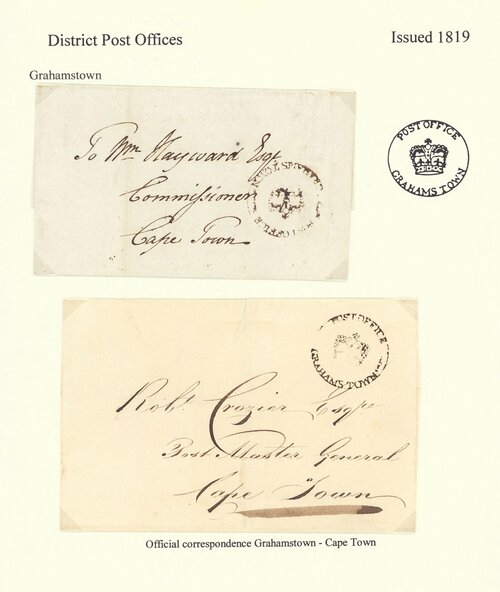 District Post Offices
Issued 1819
Grahamstown
To Wm Hayward Esqr
Commissioner
Cape Town
POST OFFICE
GRAHAMS TOWN
POST OFFICE
GRAHAMS TOWN
POST OFFICE
GRAHAMS TOWN
Robt. Crozier Esqre
Post Master General
Cape Town
Official correspondence Grahamstown - Cape Town